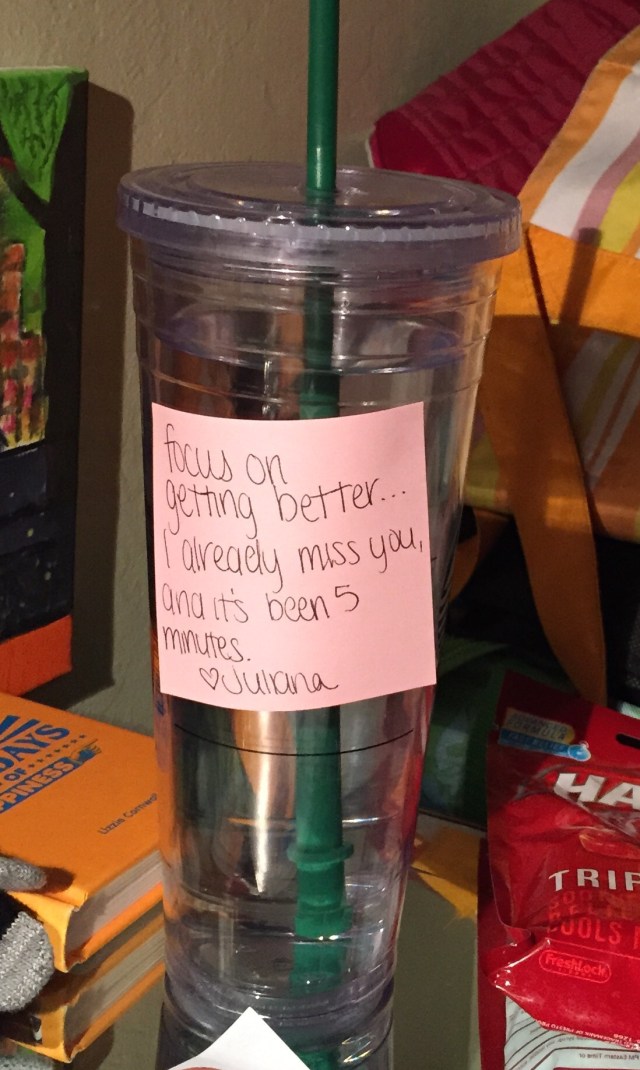 focus on
getting better...
I already miss you,
and it's been 5
minutes.
♡Juliana
DAYS
OF
PPINESS
Lizzie Cornwall
HA
TRIP
COOLS
FreshLock